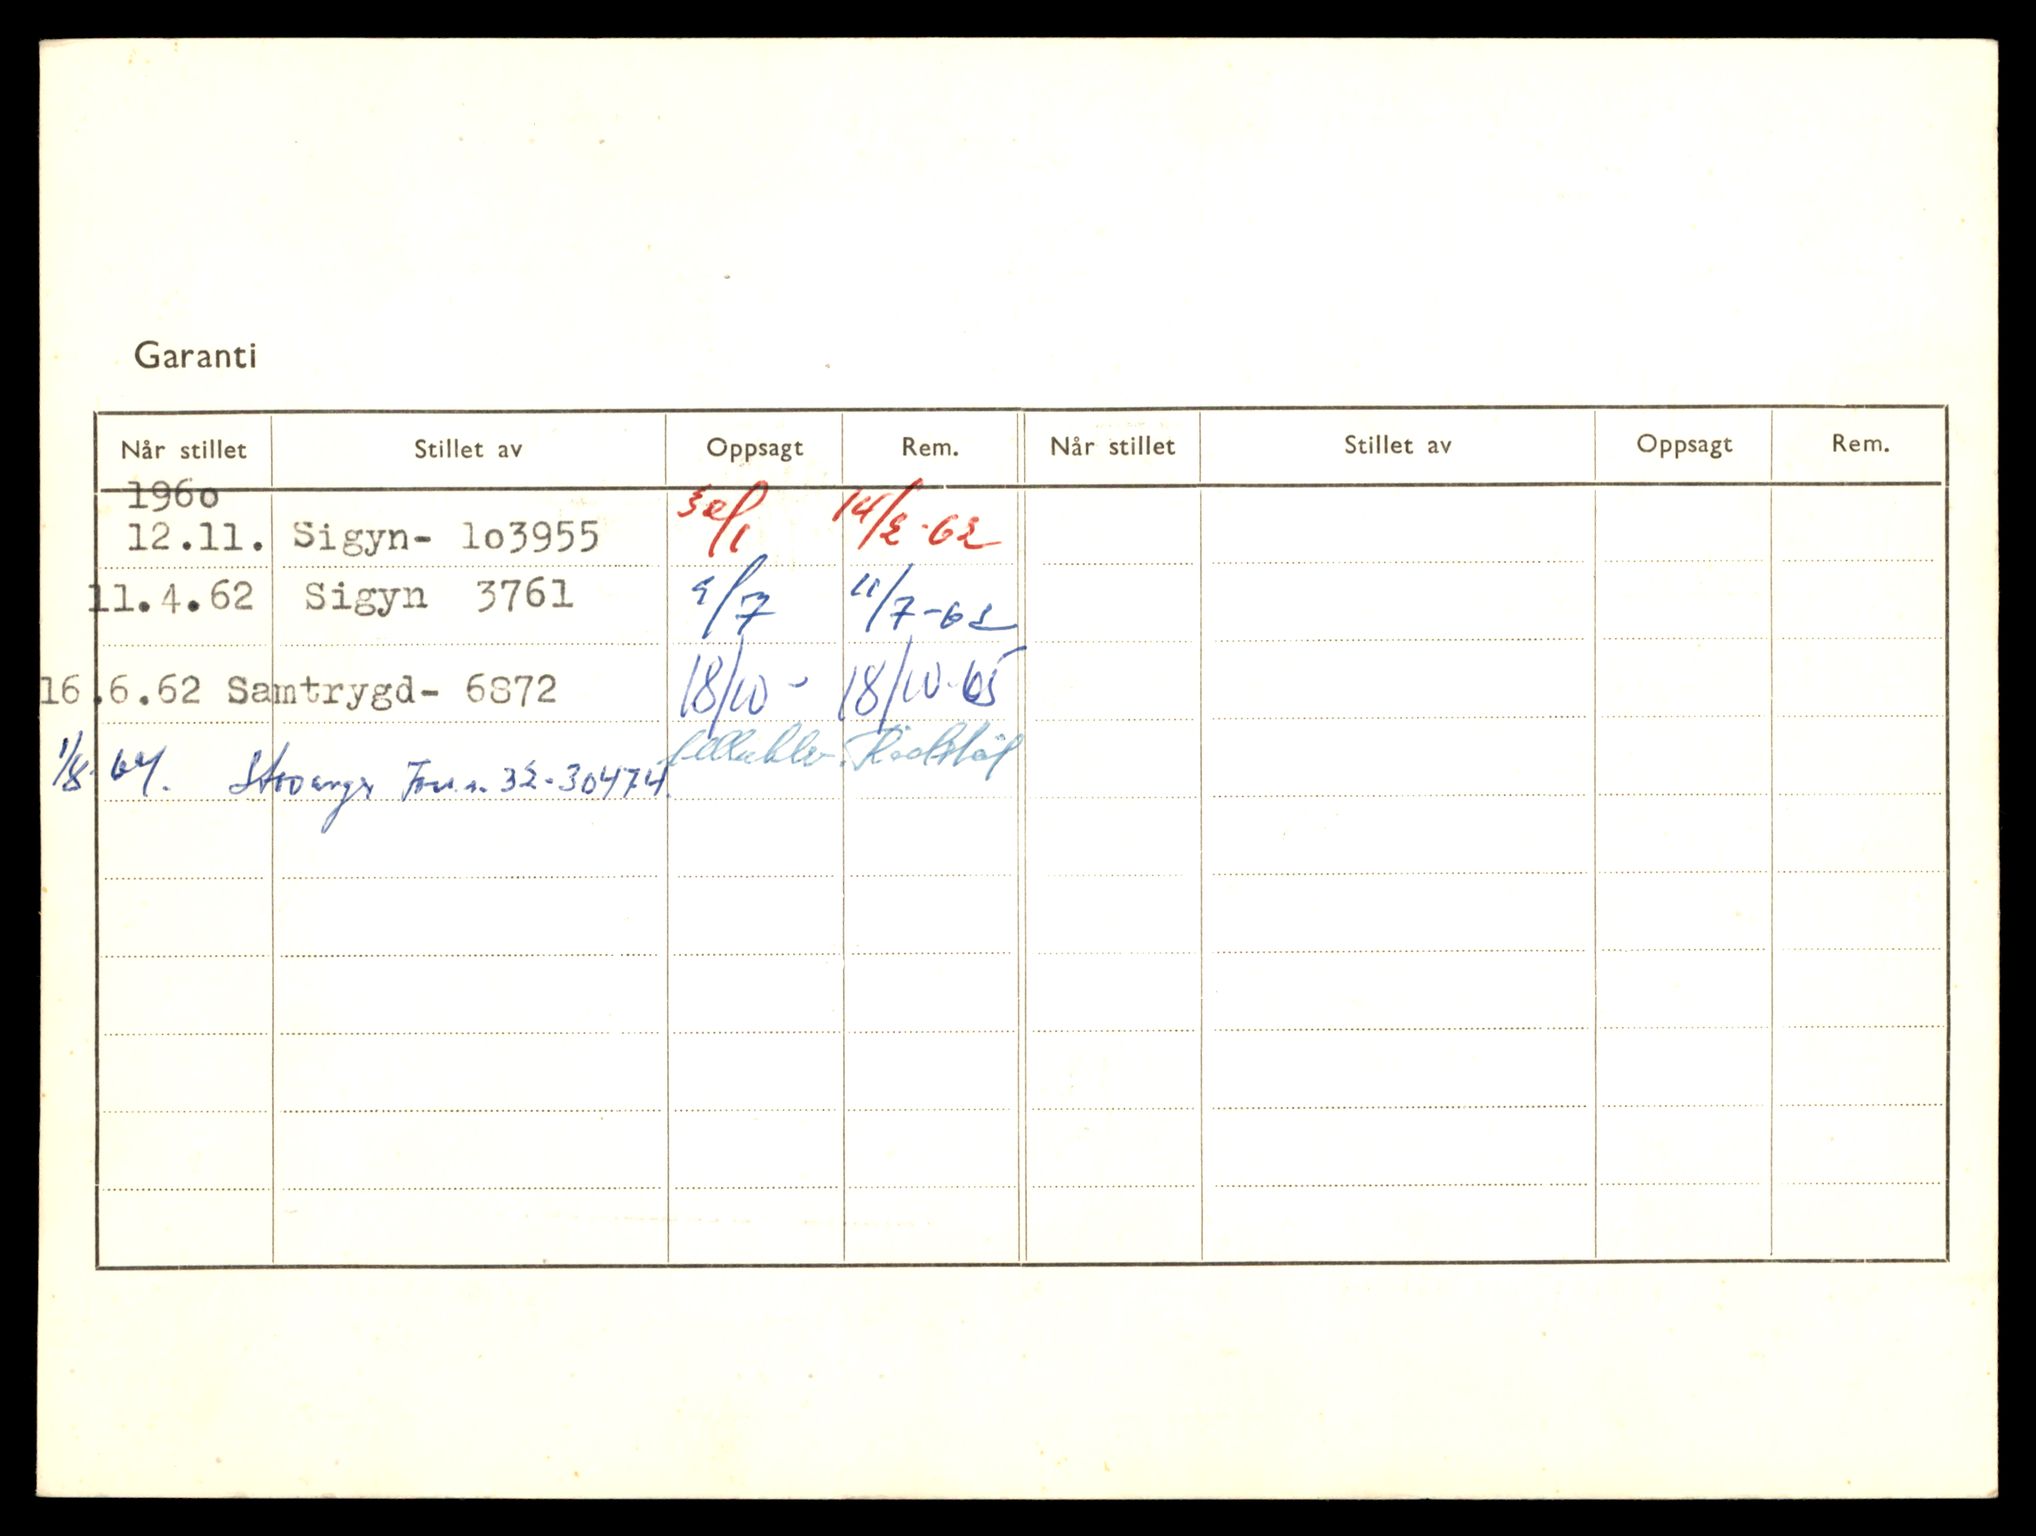 Garanti
Når stillet Stillet av Oppsagt Rem. Når stillet Stillet av Oppsagt Rem.
1960
12.11. Sigyn- 1o3955 30/1 14/2-62
11.4.62 Sigyn 3761 9/7 11/7-62
16.6.62 Samtrygd- 6872 18/10- 18/10-65
1/8-64. 32-30474.